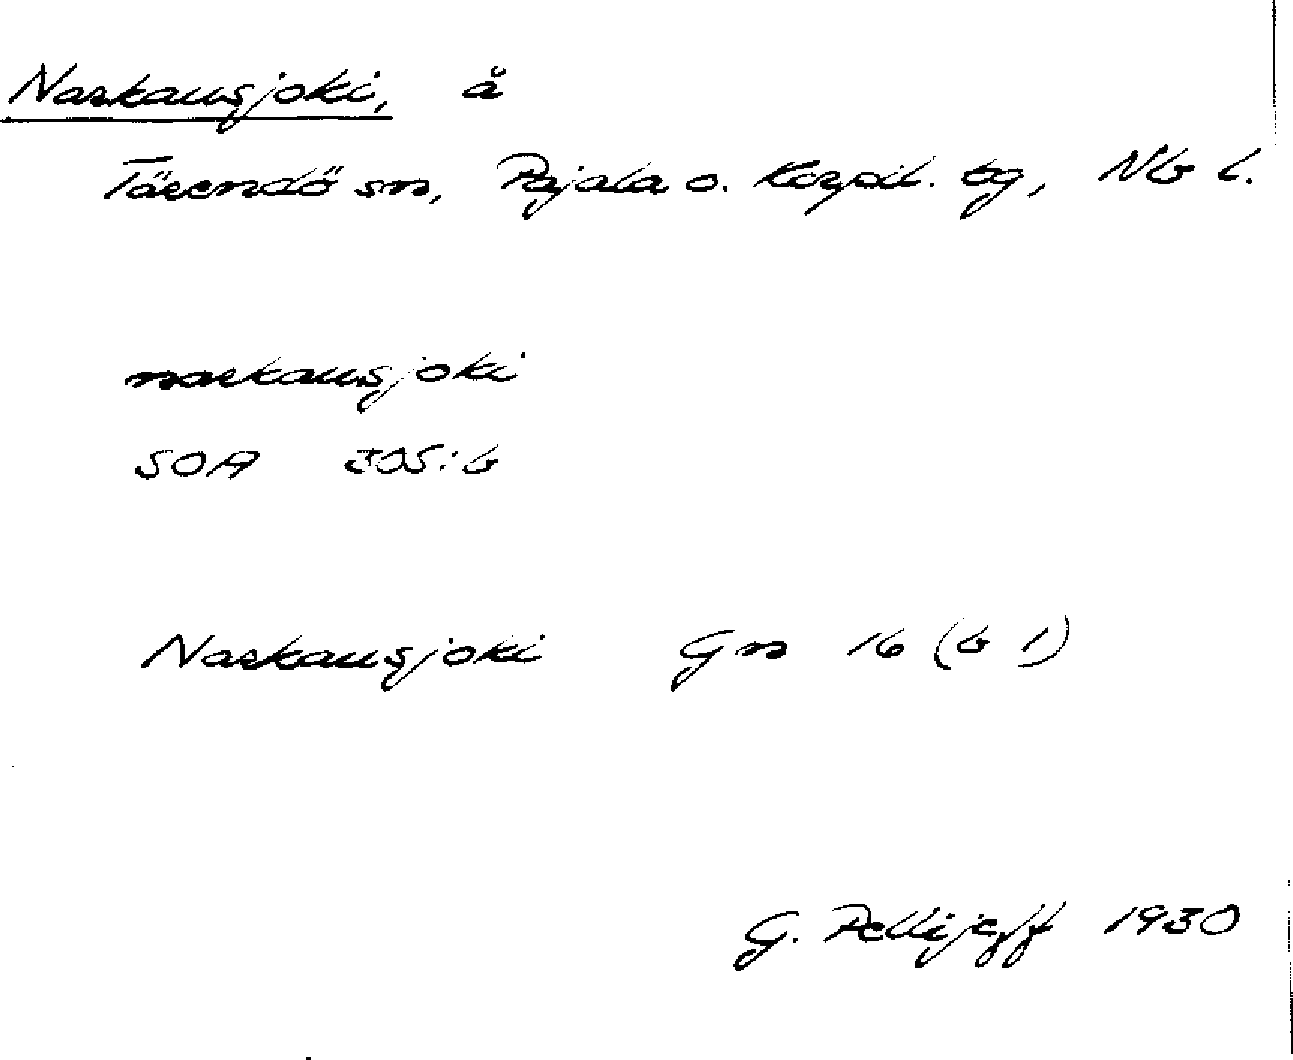 Narkausjoki, å
Tärendö sn, Pajala o. Korpil. tg, Nb l.
narkausjoki
SOA 305:6
Narkausjoki Gn 16 (b 1)
G. Pellijeff 1930